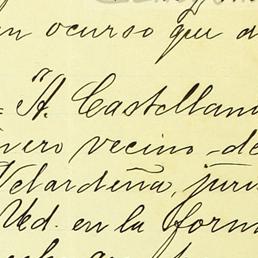 en ocurso que d
"A. Castellano
vecino de
Velardeña, juri
Ud. en la form